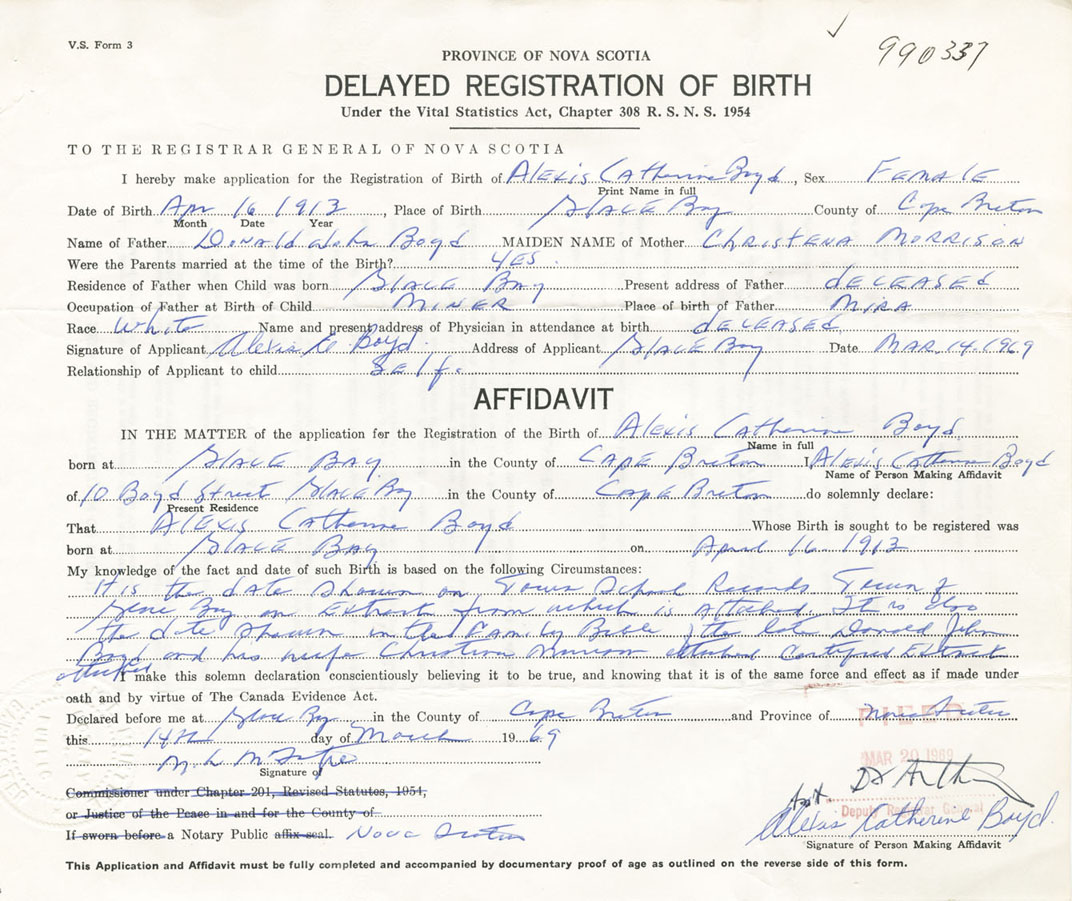 V.S. Form 3
990337
PROVINCE OF NOVA SCOTIA
DELAYED REGISTRATION OF BIRTH
Under the Vital Statistics Act, Chapter 308 R. S. N. S. 1954
TO THE REGISTRAR GENERAL OF NOVA SCOTIA
I hereby make application for the Registration of Birth of Alexis Catherine Boyd, Sex Female
Print Name in full
Date of Birth Apr 16 1913, Place of Birth Glace Bay County of Cape Breton
Month Date Year
Name of Father Donald John Boyd MAIDEN NAME of Mother Christena Morrison
Were the Parents married at the time of the Birth? Yes.
Residence of Father when Child was born Glace Bay Present address of Father deceased
Occupation of Father at Birth of Child Miner Place of birth of Father Mira
Race White Name and present address of Physician in attendance at birth deceased
Signature of Applicant Alexis C Boyd. Address of Applicant Glace Bay Date Mar. 14. 1969
Relationship of Applicant to child Self.
AFFIDAVIT
IN THE MATTER of the application for the Registration of the Birth of Alexis Catherine Boyd
Name in full
born at Glace Bay in the County of Cape Breton I, Alexis Catherine Boyd
Name of Person Making Affidavit
of 10 Boyd Street Glace Bay in the County of Cape Breton do solemnly declare:
Present Residence
That Alexis Catherine Boyd Whose Birth is sought to be registered was
born at Glace Bay on April 16 1913
My knowledge of the fact and date of such Birth is based on the following Circumstances:
It is the date shown on Town School Records Town of
Glace Bay an Extract from which is attached. It is also
the date shown in the Family Bible of the late Donald John
Boyd and his wife Christena Morrison attached Certified Extract
attached
I make this solemn declaration conscientiously believing it to be true, and knowing that it is of the same force and effect as if made under
oath and by virtue of The Canada Evidence Act.
Declared before me at Glace Bay in the County of Cape Breton and Province of Nova Scotia
this 14th day of March 1969
FILED
MAR 20 1969
Signature of
Commissioner under Chapter 201, Revised Statutes, 1954,
or Justice of the Peace in and for the County of
Deputy Registrar General
If sworn before a Notary Public affix seal. Nova Scotia
Alexis Catherine Boyd.
Signature of Person Making Affidavit
This Application and Affidavit must be fully completed and accompanied by documentary proof of age as outlined on the reverse side of this form.